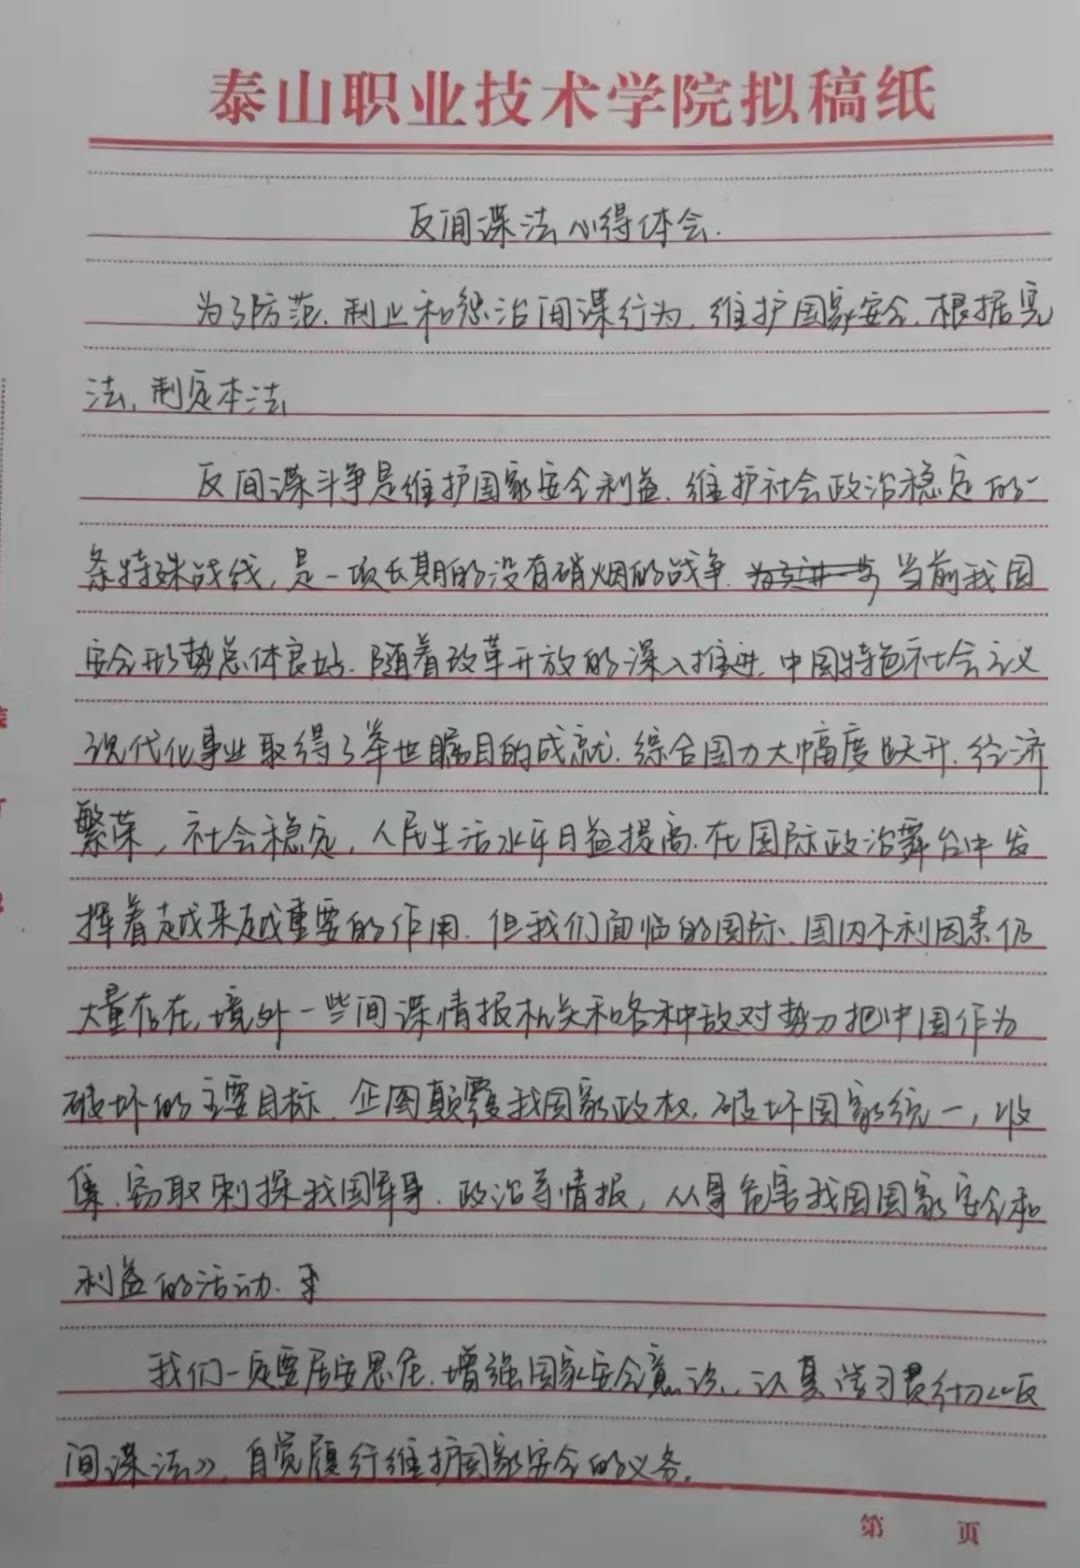 泰山职业技术学院拟稿纸
反间谍法心得体会.
为了防范、制止和惩治间谍行为,维护国家安全,根据宪
法,制定本法
反间谍斗争是维护国家安全利益、维护社会政治稳定的一
条特殊战线,是一项长期的没有硝烟的战争.当前我国
安全形势总体良好.随着改革开放的深入推进,中国特色社会主义
现代化事业取得了举世瞩目的成就.综合国力大幅度跃升.经济
繁荣,社会稳定,人民生活水平日益提高.在国际政治舞台中发
挥着越来越重要的作用.但我们面临的国际、国内不利因素仍
大量存在,境外一些间谍情报机关和各种敌对势力把中国作为
破坏的主要目标.企图颠覆我国家政权,破坏国家统一,收
集、窃取刺探我国军事、政治等情报,从事危害我国国家安全和
利益的活动.
我们一定要居安思危.增强国家安全意识、认真学习贯彻《反
间谍法》,自觉履行维护国家安全的义务.
第 页